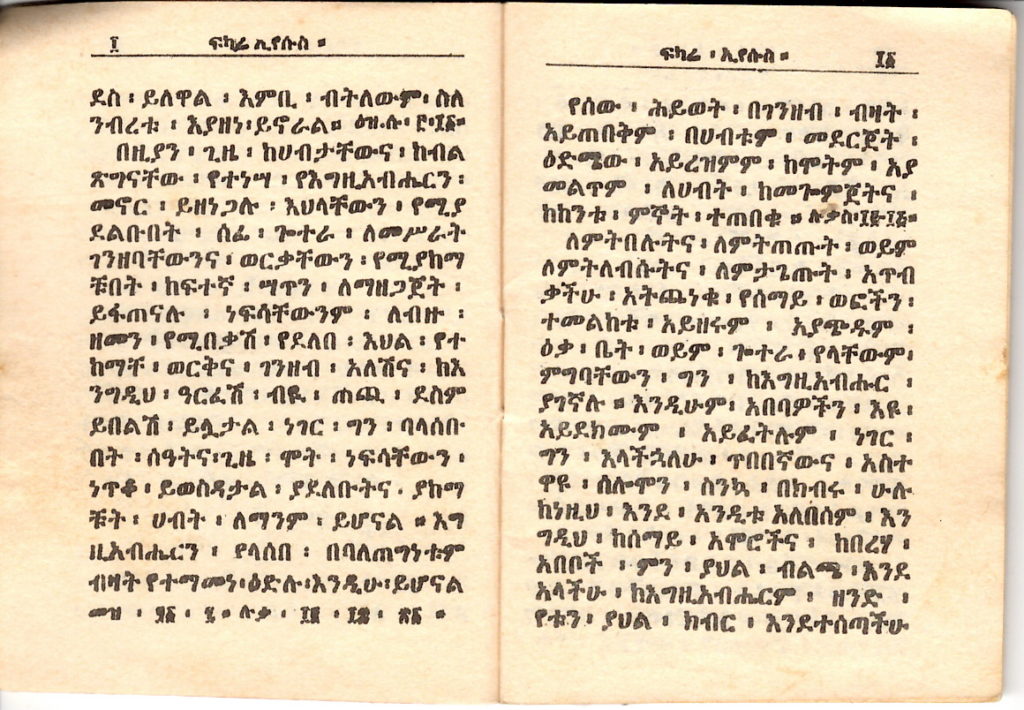 ፲ ፍካሬ ኢየሱስ ።
ደስ ፡ ይለዋል ፡ እምቢ ፡ ብትለውም ፡ ስለ
ንብረቱ ፡ እያዘነ ፡ ይኖራል ። ዕዝ.ሱ. ፫ ፡ ፲፩ ።
በዚያን ፡ ጊዜ ፡ ከሀብታቸውና ፡ ከብል
ጽግናቸው ፡ የተነሣ ፡ የእግዚአብሔርን ፡
መኖር ፡ ይዘነጋሉ ፡ እህላቸውን ፡ የሚያ
ደልቡበት ፡ ሰፊ ፡ ጐተራ ፡ ለመሥራት
ገንዘባቸውንና ፡ ወርቃቸውን ፡ የሚያከማ
ቹበት ፡ ከፍተኛ ፡ ሣጥን ፡ ለማዘጋጀት ፡
ይፋጠናሉ ፡ ነፍሳቸውንም ፡ ለብዙ ፡
ዘመን ፡ የሚበቃሽ ፡ የደለበ ፡ እህል ፡ የተ
ከማቸ ፡ ወርቅና ፡ ገንዘብ ፡ አለሽና ፡ ከእ
ንግዲህ ፡ ዓርፈሽ ፡ ብዪ ፡ ጠጪ ፡ ደስም
ይበልሽ ፡ ይሏታል ፡ ነገር ፡ ግን ፡ ባላሰቡ
በት ፡ ሰዓትና ፡ ጊዜ ፡ ሞት ፡ ነፍሳቸውን ፡
ነጥቆ ፡ ይወስዳታል ፡ ያደለቡትና ፡ ያከማ
ቹት ፡ ሀብት ፡ ለማንም ፡ ይሆናል ። እግ
ዚአብሔርን ፡ ያላሰበ ፡ በባለጠግነቱም
ብዛት የተማመነ ፡ ዕድሉ ፡ እንዲሁ ፡ ይሆናል
መዝ ፡ ፶፩ ፡ ፯ ። ሉቃ ፡ ፲፪ ፡ ፲፱ ፡ ፳፩ ።
ፍካሬ ፡ ኢየሱስ ። ፲፩
የሰው ፡ ሕይወት ፡ በገንዘብ ፡ ብዛት ፡
አይጠበቅም ፡ በሀብቱም ፡ መደርጀት ፡
ዕድሜው ፡ አይረዝምም ፡ ከሞትም ፡ አያ
መልጥም ፡ ለሀብት ፡ ከመጐምጀትና ፡
ከከንቱ ፡ ምኞት ፡ ተጠበቁ ። ሉቃስ ፡ ፲፪ ፡ ፲፭ ።
ለምትበሉትና ፡ ለምትጠጡት ፡ ወይም
ለምትለብሱትና ፡ ለምታጌጡት ፡ አጥብ
ቃችሁ ፡ አትጨነቁ ፡ የሰማይ ፡ ወፎችን ፡
ተመልከቱ ፡ አይዘሩም ፡ አያጭዱም ፡
ዕቃ ፡ ቤት ፡ ወይም ፡ ጐተራ ፡ የላቸውም ፡
ምግባቸውን ፡ ግን ፡ ከእግዚአብሔር ፡
ያገኛሉ ። እንዲሁም ፡ አበባዎችን ፡ እዩ ፡
አይደክሙም ፡ አይፈትሉም ፡ ነገር ፡
ግን ፡ እላችኋለሁ ፡ ጥበበኛውና ፡ አስተ
ዋዩ ፡ ሰሎሞን ፡ ስንኳ ፡ በክብሩ ፡ ሁሉ
ከነዚህ ፡ እንደ ፡ አንዲቱ አለበሰም ፡ እን
ግዲህ ፡ ከሰማይ ፡ አሞሮችና ፡ ከበረሃ ፡
አበቦች ፡ ምን ፡ ያህል ፡ ብልጫ ፡ እንደ
አላችሁ ፡ ከእግዚአብሔርም ፡ ዘንድ ፡
የቱን ፡ ያህል ፡ ክብር ፡ እንደተሰጣችሁ